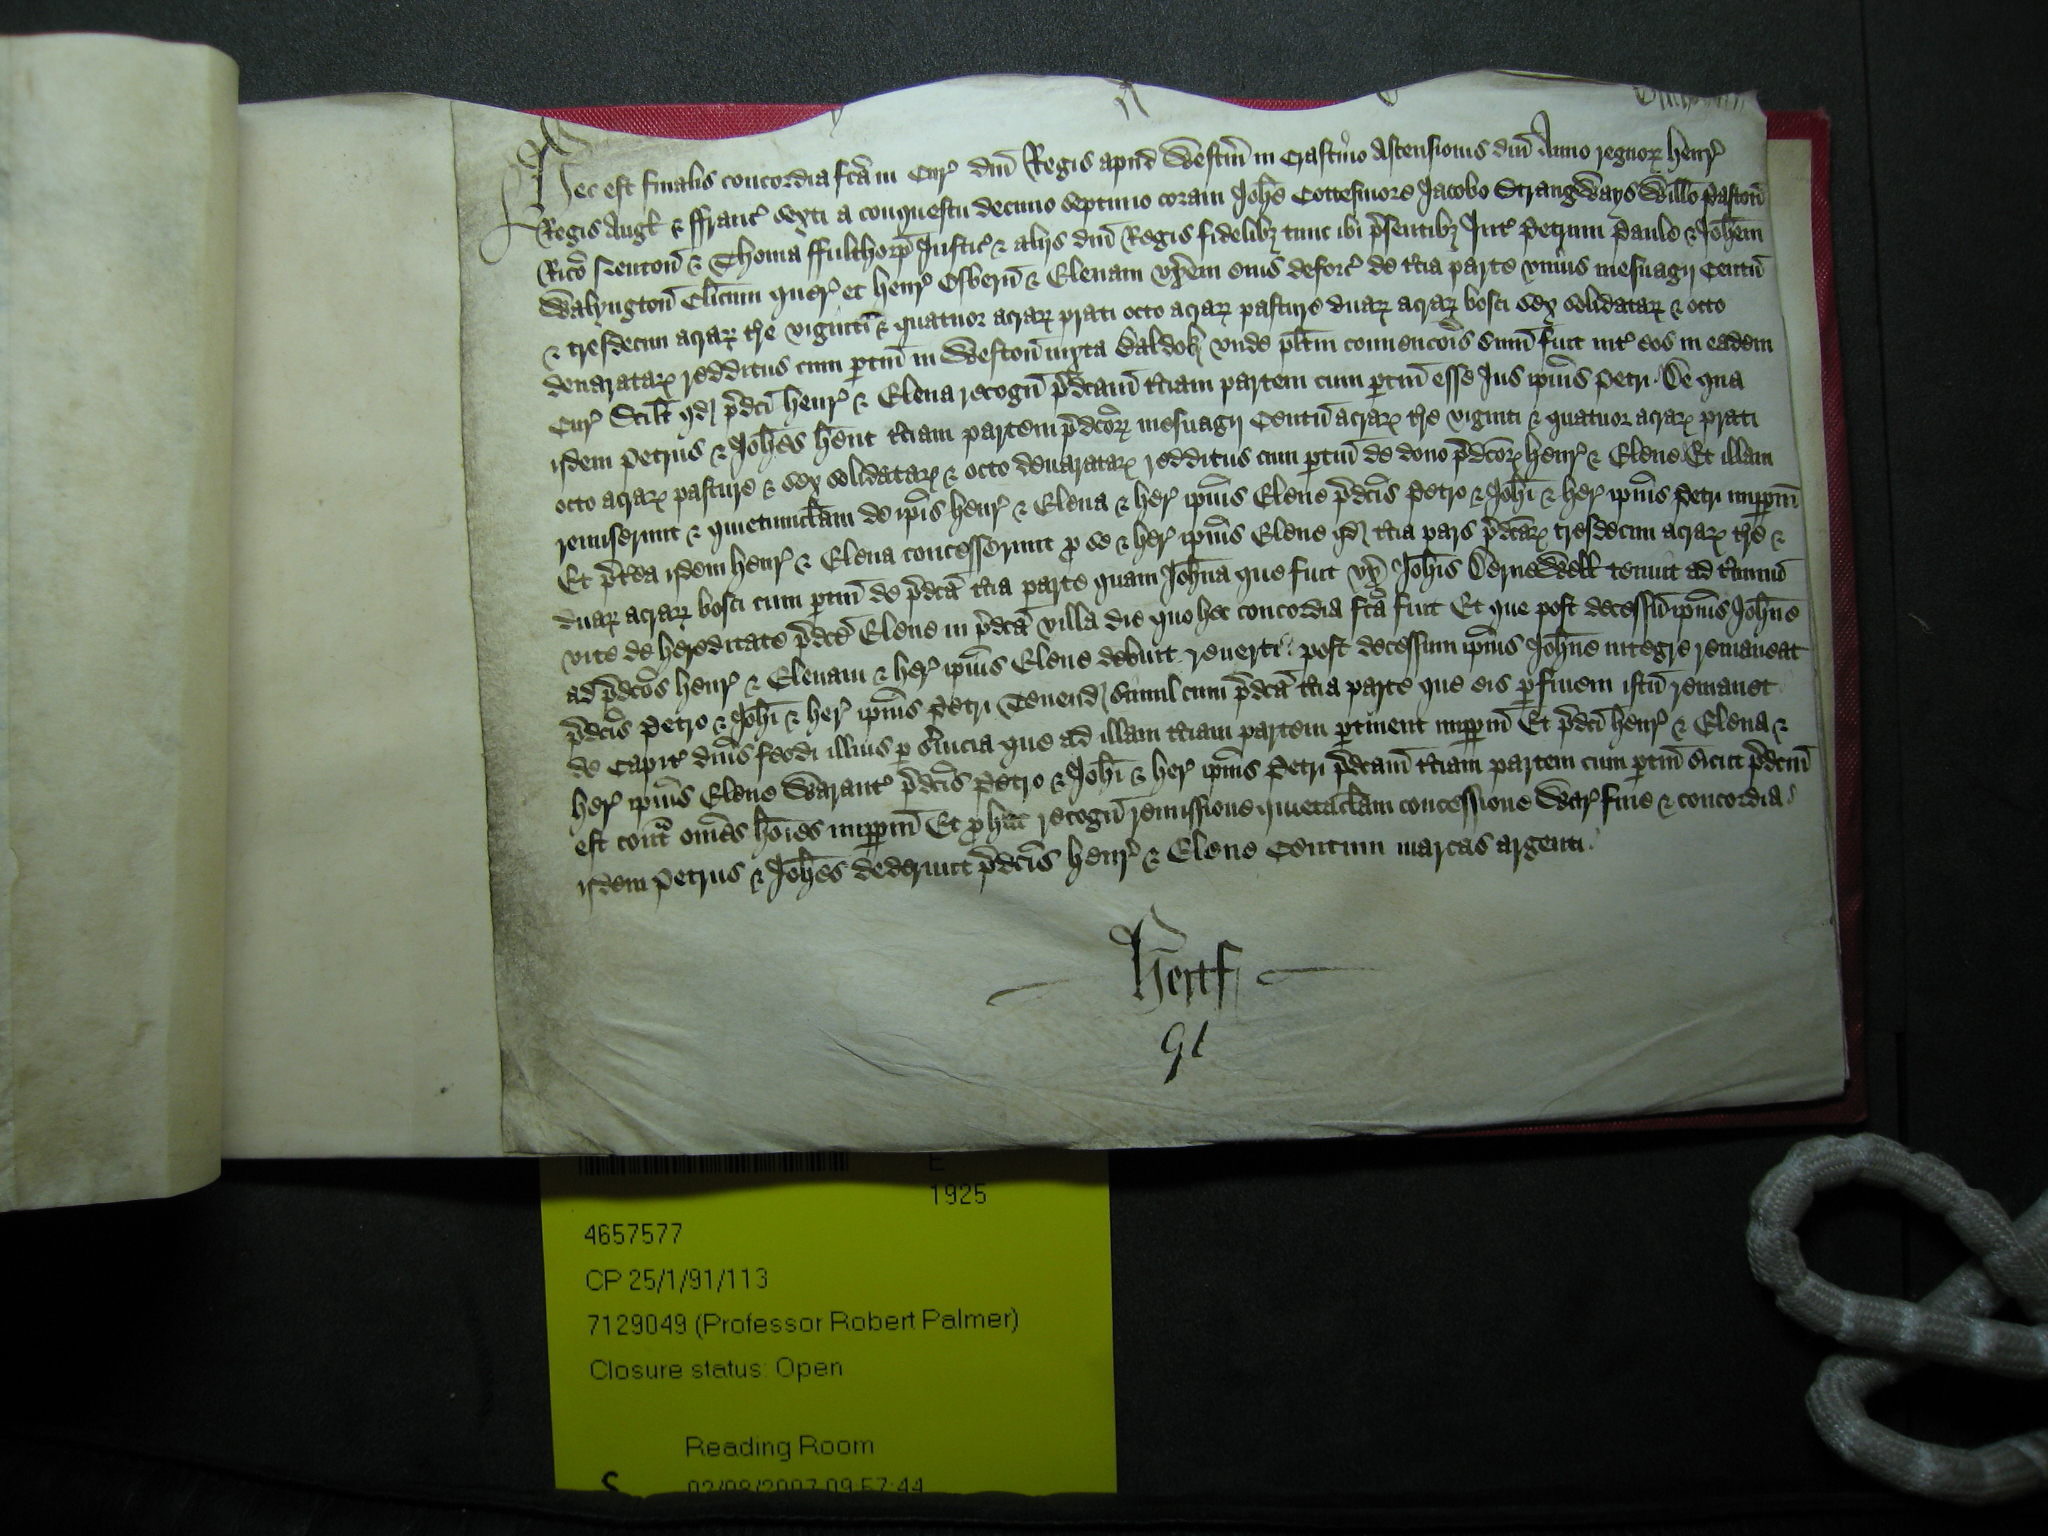 Hec est finalis concordia fca in Cur dni Regis apud Westm in Crastino Ascensionis dni Anno regnor Henr
Regis Angl & ffranc sexti a conquestu decimo septimo coram Johe Cottesmore Jacobo Strangways Willo Paston
Rico Neuton & Thoma ffulthorp Justic & alijs dni Regis fidelibz tunc ibi psentibz Int Petrum Paulo & Johem
Walyngton Clicum quer et Henr Osbern & Elenam vxem eius deforc de tcia parte vnius mesuagij Centu
& tresdecim acrar tre viginti & quatuor acrar prati octo acrar pasture duar acrar bosci sex solidatar & octo
denaratar redditus cum ptin in Weston iuxta Baldok vnde pltm conuencois sum fuit int eos in eadem
Cur Scilt qd pdci Henr & Elena recogn pdcam tciam partem cum ptin esse Jus ipius Petri De qua
ijdem Petrus & Johes hent tciam partem pdcor mesuagij Centu acrar tre viginti & quatuor acrar prati
octo acrar pasture & sex solidatar & octo denaratar redditus cum ptin de dono pdcor Henr & Elene Et illam
remiserunt & quietumclam de ipis Henr & Elena & her ipius Elene pdcis Petro & Johi & her ipius Petri imppm
Et ptea ijdem Henr & Elena concesserunt p se & her ipius Elene qd tcia pars pdcar tresdecim acrar tre &
duar acrar bosci cum ptin de pdca tcia parte quam Johna que fuit vx Johis Bernewell tenuit ad tminu
vite de hereditate pdce Elene in pdca villa die quo hec concordia fca fuit Et que post decessu ipius Johne
ad pdcos Henr & Elenam & her ipius Elene debuit reuerti post decessum ipius Johne integre remaneat
pdcis Petro & Johi & her ipius Petri Tenend simul cum pdca tcia parte que eis p finem istu remanet
de Capit dnis feodi illius p suicia que ad illam tciam partem ptinent imppm Et pdci Henr & Elena &
her ipius Elene Warant pdcis Petro & Johi & her ipius Petri pdcam tciam partem cum ptin sicut pdcm
est cont omes hoies imppm Et p hac recogn remissione quietaclam concessione War fine & concordia
ijdem Petrus & Johes dederunt pdcis Henr & Elene Centum marcas argenti
Hertf
91
E
1925
4657577
CP 25/1/91/113
7129049 (Professor Robert Palmer)
Closure status: Open
Reading Room
S
02/08/2007 09:57:44